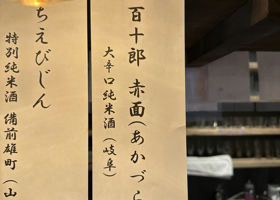 百十郎 赤面(あかづら
大辛口純米酒(岐阜)
ちえびじん
特別純米酒 備前雄町(山